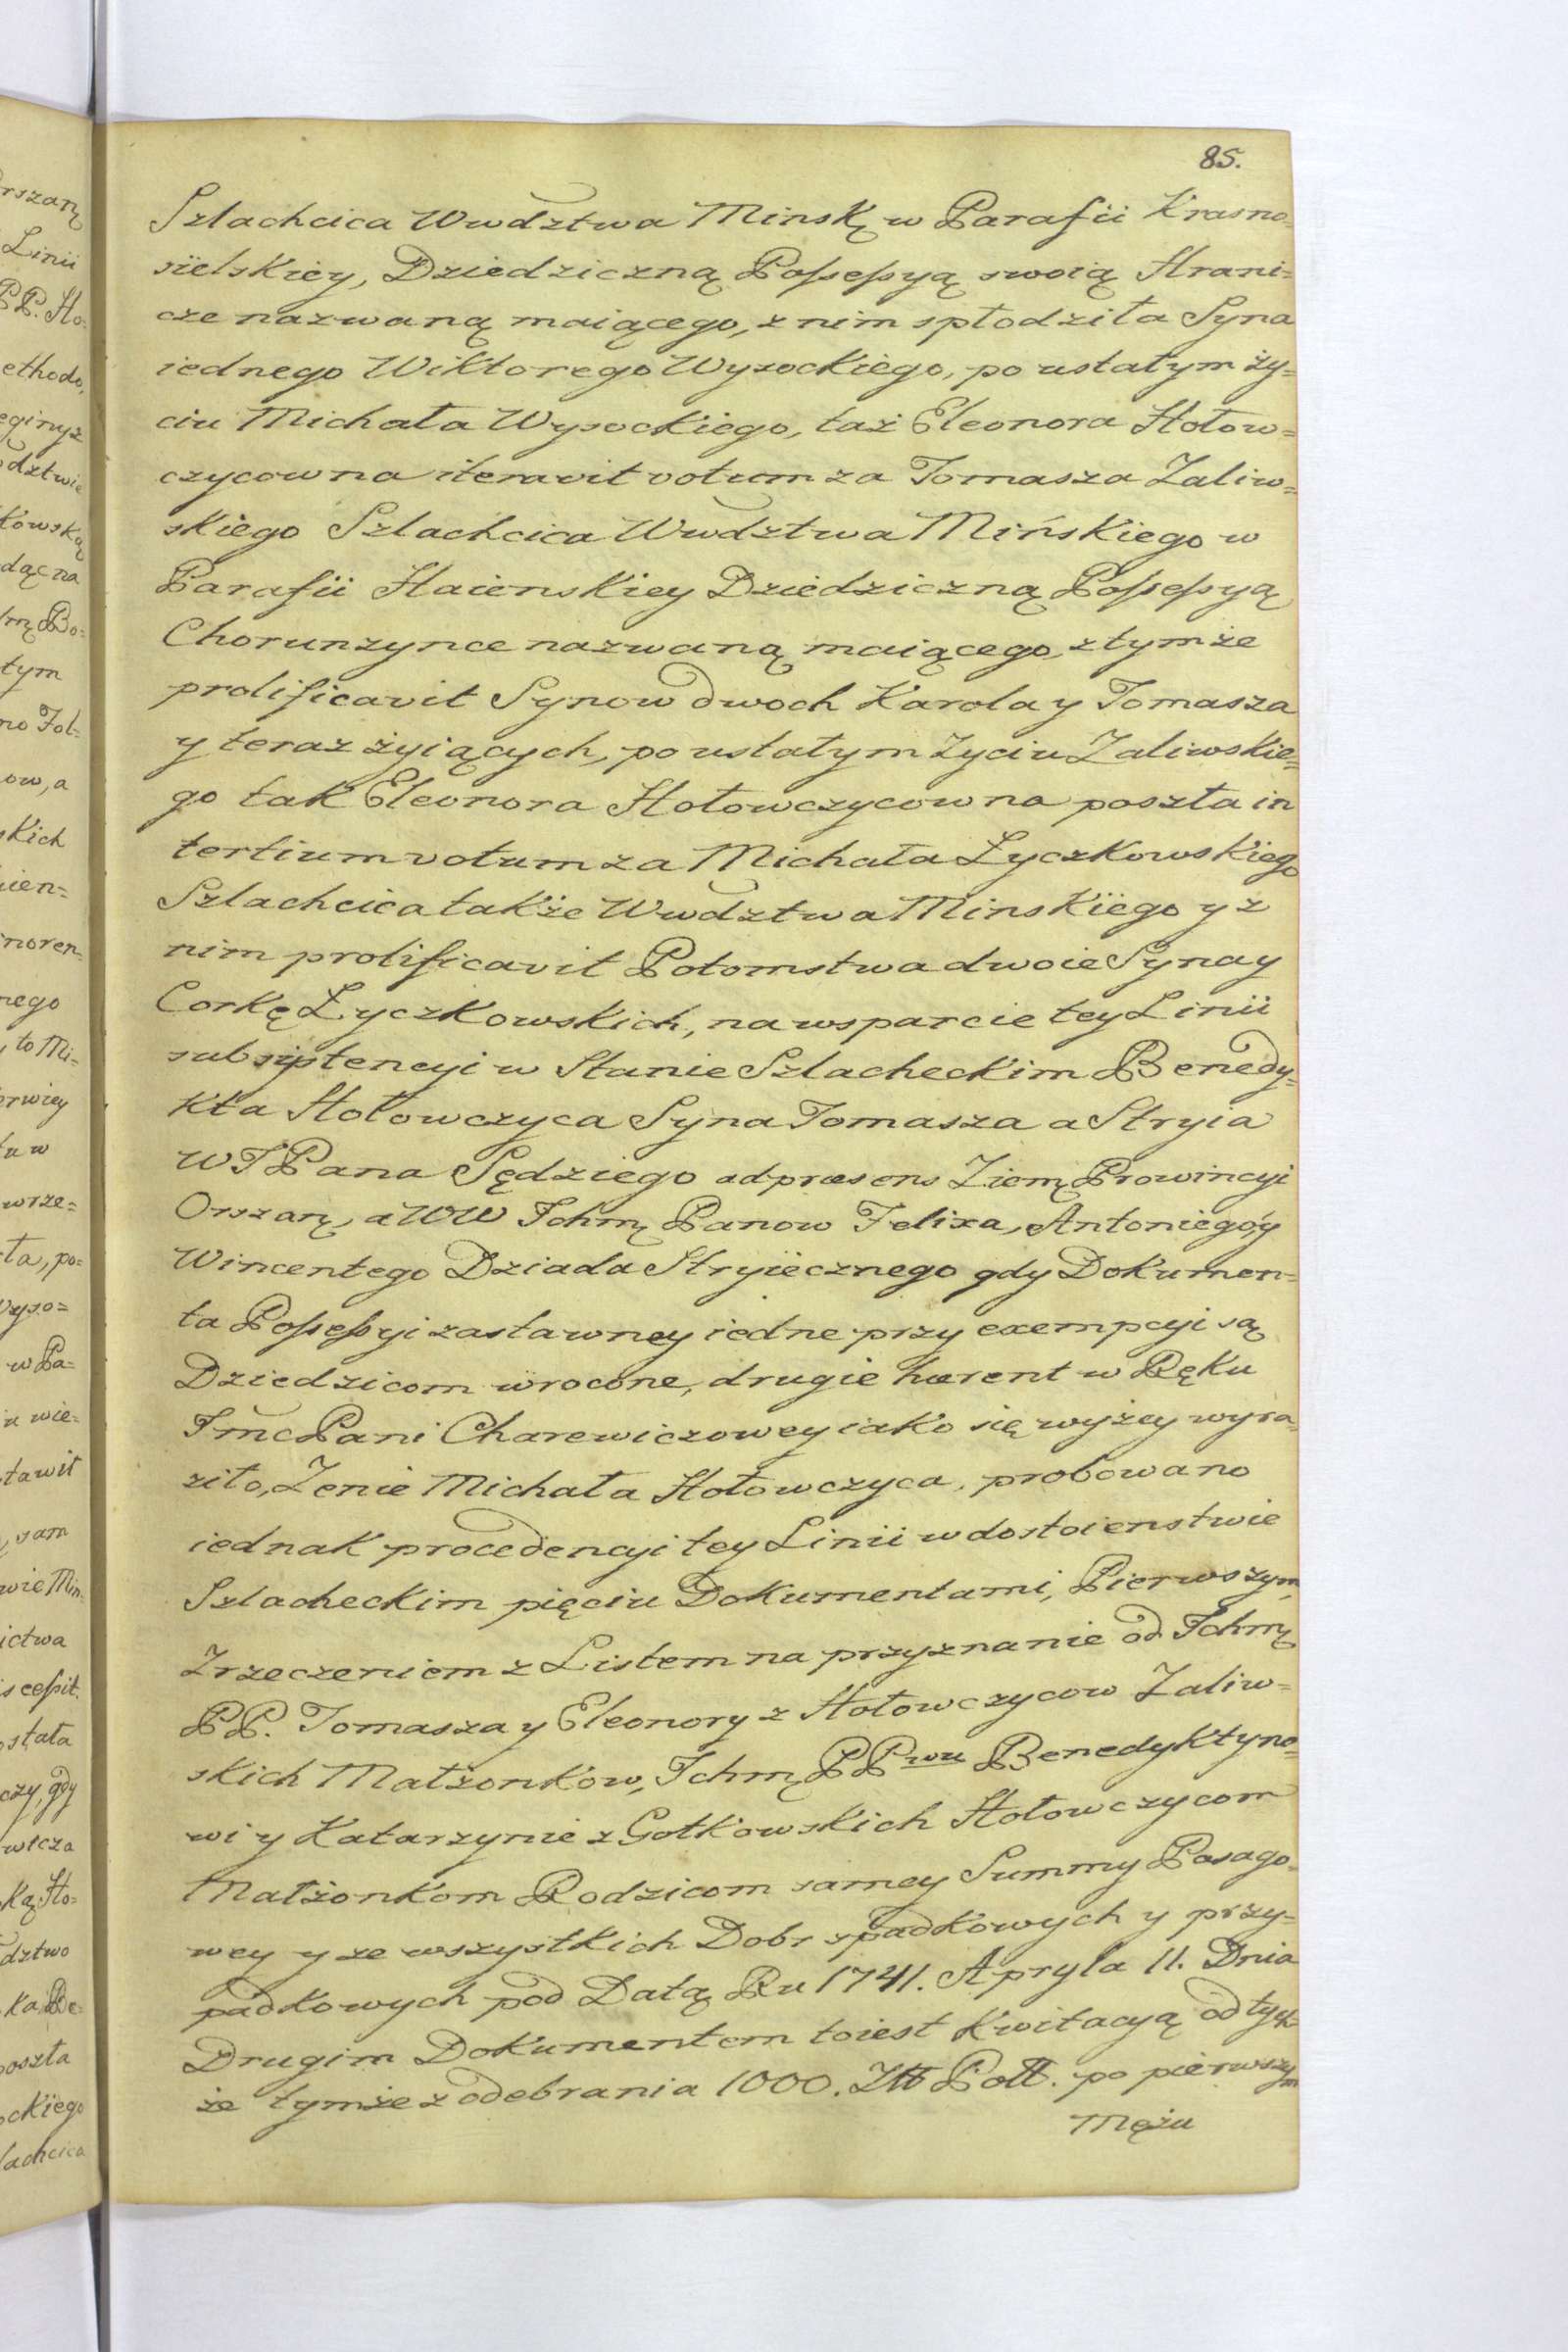 85.
Szlachcica Wwdztwa Minsk. w Parafii Krasno-
sielskiey, Dziedziczną Possessyą swoią Hrani=
cze nazwaną maiącego, z nim spłodziła Syna
iednego Wiktorego Wysockiego, po ustałym ży=
ciu Michała Wysockiego, taż Eleonora Hołow=
czycowna iteravit votum za Tomasza Zaliw=
skiego Szlachcica Wwdztwa Mińskiego w
Parafii Haienskiey Dziedziczną Possessyą
Chorunzynce nazwaną maiącego, z tymże
prolificavit Synow dwoch Karola y Tomasza
y teraz żyiących, po ustałym Zyciu Zaliwskie=
go tak Eleonora Hołowczycowna poszła in
tertium votum za Michała Łyczkowskiego
Szlachcica także Wwdztwa Minskiego y z
nim prolificavit Potomstwa dwoie Syna y
Corkę Łyczkowskich, na wsparcie tey Linii
subsistencyi w Stanie Szlacheckim Benedy=
kta Hołowczyca Syna Tomasza a Stryia
WJPana Sędziego ad præsens Ziem. Prowincyi
Orszan, a WW Ichm Panow Felixa, Antoniego y
Wincentego Dziada Stryiecznego gdy Dokumen=
ta Possessyi zastawney iedne przy exempcyi są
Dziedzicom wrocone, drugie hærent w Ręku
JmcPani Charewiczowey iako się wyżey wyra-
ziło, Zenie Michała Hołowczyca, probowano
iednak procedencyi tey Linii w dostoienstwie
Szlacheckim pięciu Dokumentami, Pierwszym,
Zrzeczeniem z Listem na przyznanie od Ichm
PP. Tomasza y Eleonory z Hołowczycow Zaliw=
skich Małżonkow, Ichm PPwu Benedyktyno=
wi y Katarzynie z Gotkowskich Hołowczycom
Małżonkom Rodzicom samey Summy Posago-
wey y ze wszystkich Dobr spadkowych y przy=
padkowych pod Datą Ru 1741. Apryla 11. Dnia
Drugim Dokumentem toiest Kwitacyą od tych=
że tymże z odebrania 1000. Złł Poll. po pierwszym
Mężu